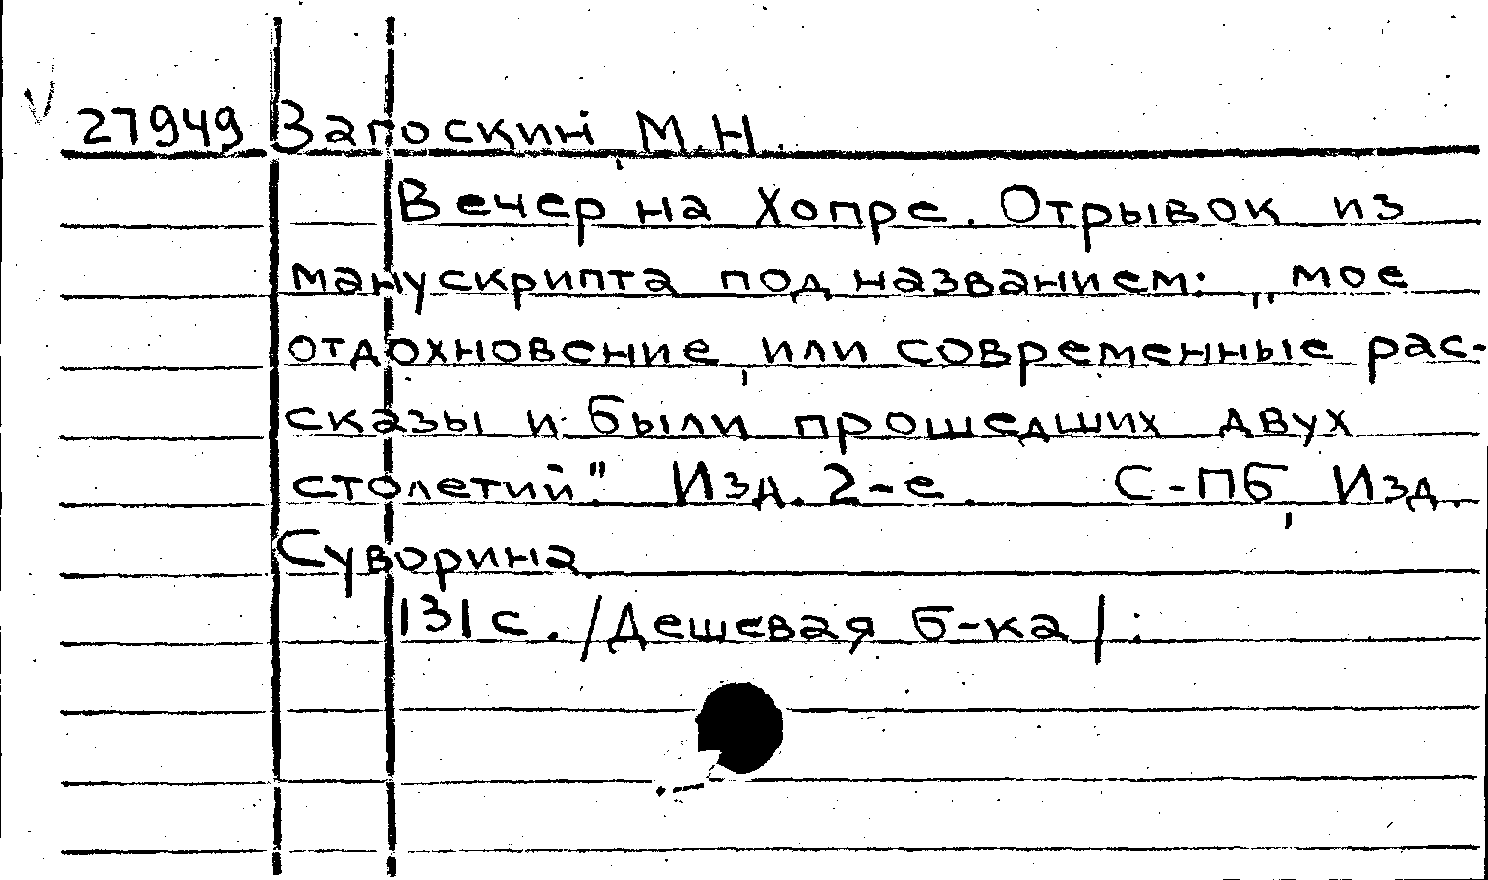 27949 Загоскин, М.Н.
Вечер на Хопре. Отрывок из
манускрипта под названием: „мое
отдохновение, или современные рас-
сказы и были прошедших двух
столетий". Изд. 2-е. С-ПБ, Изд.
Суворина
131 с. /Дешевая б-ка/.